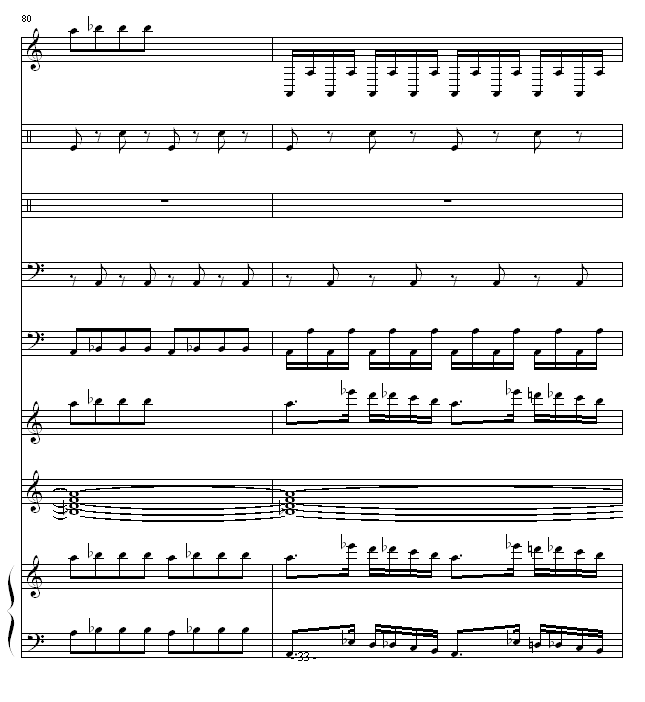 80
- 33 -